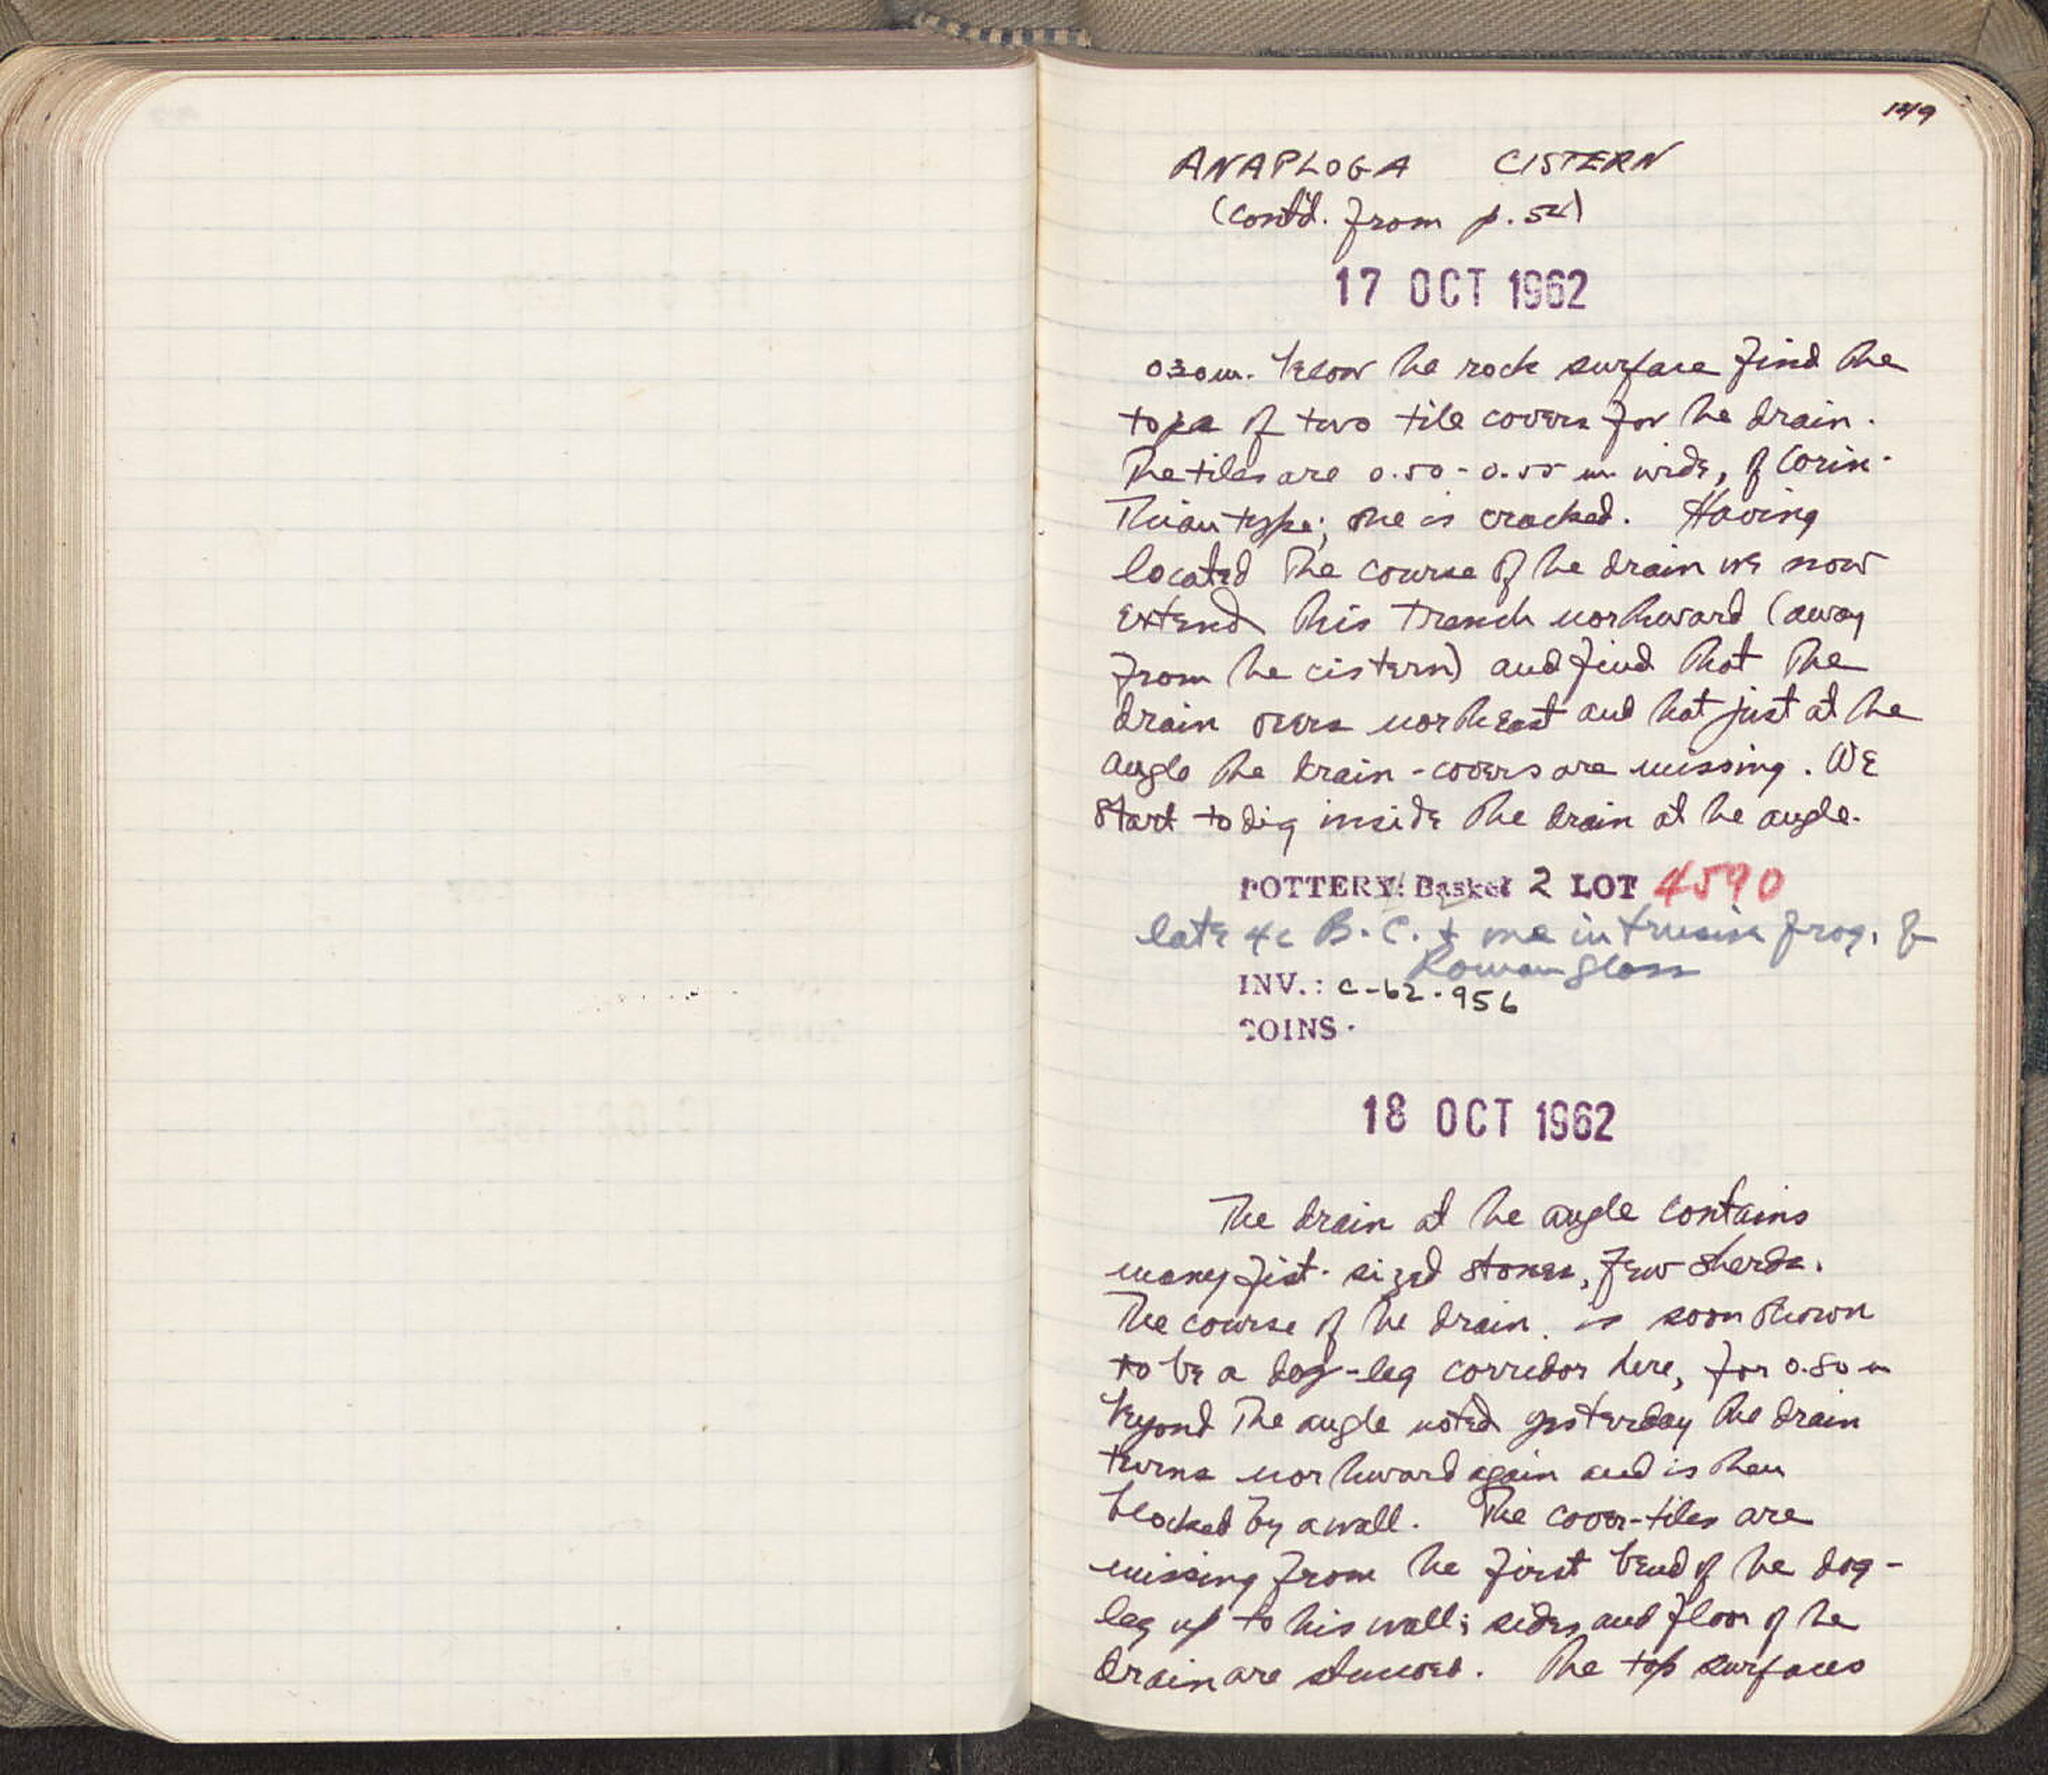 149
ANAPLOGA CISTERN
(cont'd. from p. 52)
17 OCT 1962
0.30 m. below the rock surface find the
tops of two tile covers for the drain.
The tiles are 0.50 - 0.55 m. wide, of Corin-
thian type; one is cracked. Having
located the course of the drain we now
extend this trench northward (away
from the cistern) and find that the
drain veers northeast and that just at the
angle the drain-covers are missing. We
start to dig inside the drain at the angle.
POTTERY: Basket 2 LOT 4590
late 4c B.C. + one intrusive frag. of
Roman glass
INV.: C-62-956
COINS.
18 OCT 1962
The drain at the angle contains
many fist-sized stones, few sherds.
The course of the drain is soon shown
to be a dog-leg corridor here, for 0.80 m
beyond the angle noted yesterday the drain
turns northward again and is then
blocked by a wall. The cover-tiles are
missing from the first bend of the dog-
leg up to this wall; sides and floor of the
drain are stuccoed. The top surfaces